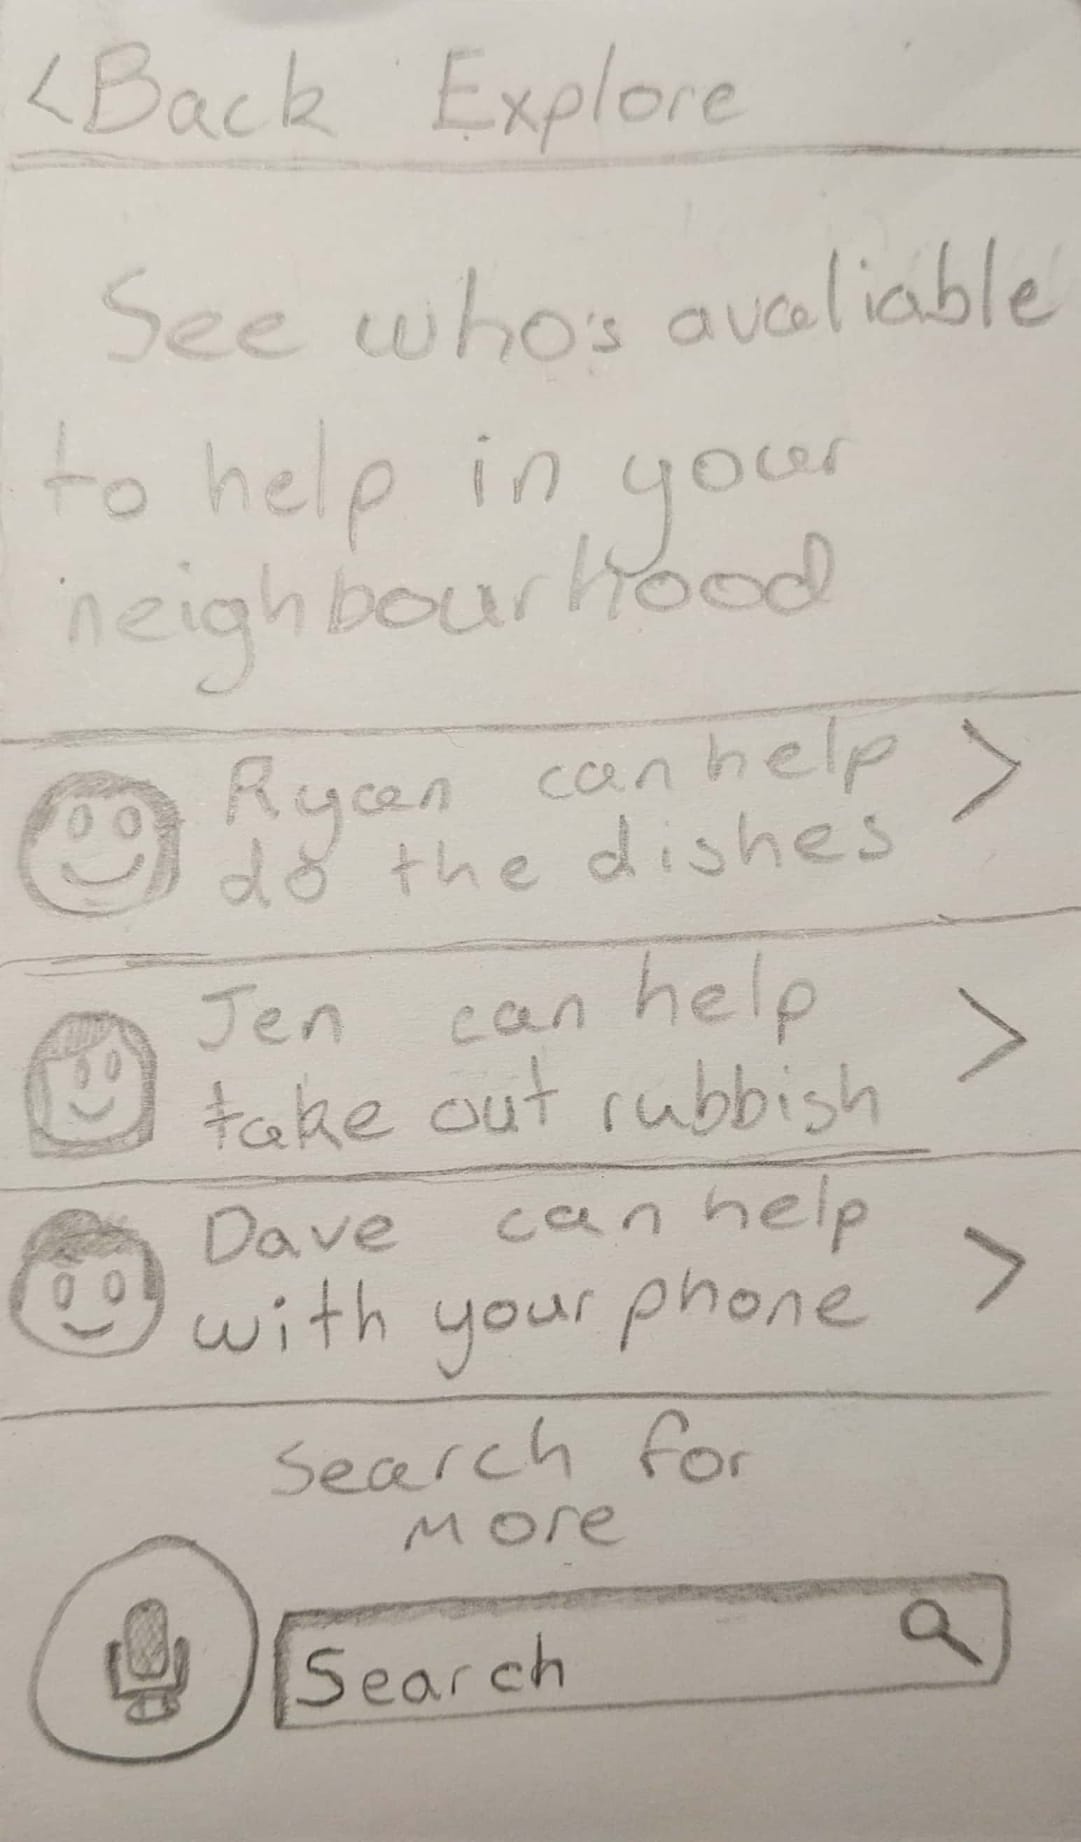 <Back Explore
See who's avaliable
to help in your
neighbourhood
Ryan can help >
do the dishes
Jen can help >
take out rubbish
Dave can help >
with your phone
Search for
more
Search